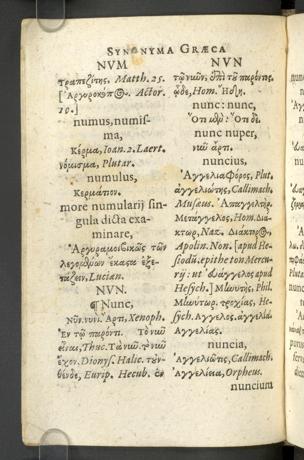 SYNONYMA GRÆCA
NVM
τραπεζίτης. Matth. 25.
[Ἀργυροκόπος. Actor.
20.]
numus, numis-
ma,
Κέρμα, Ioan. 2. Laert.
νόμισμα, Plutar.
numulus,
Κερμάτιον.
more numularij sin-
gula dicta exa-
minare,
Ἀργυραμοιβικῶς τῶν
λεγομένων ἕκαστα ἐξε-
τάζειν, Lucian.
NVN.
¶ Nunc,
Νῦν, νυνί. Ἄρτι, Xenoph.
Ἐν τῷ παρόντι. Τὸ νῦν
εἶναι, Thuc. Τὰ νῦν. τὸ νῦν
ἔχον. Dionys. Halic. ταν-
θένδε, Eurip. Hecub. ὡς
NVN
τῶν νῦν. ἐπὶ τοῦ παρόντος.
ὧδε, Hom. Ἤδη.
nunc: nunc,
Ὁτὲ μὲν: Ὁτὲ δὲ.
nunc nuper,
νῦν ἄρτι.
nuncius,
Ἀγγελιαφόρος, Plut.
ἀγγελιώτης, Callimach.
Musæus. Ἀπαγγελτήρ.
Μετάγγελος, Hom. Διά-
κτωρ, Naz. Διάκτορος,
Apolin. Non. [apud He-
siodũ. epitheton Mercu-
rij: ut ἄγγελος apud
Hesych.] Μηνυτής, Phil.
Μηνύτωρ. τροχίας, He-
sych. Ἄγγελος. ἀγγελία
Ἀγγελίας.
nuncia,
Ἀγγελιῶτις, Callimach.
Ἀγγέλεια, Orpheus.
nuncium